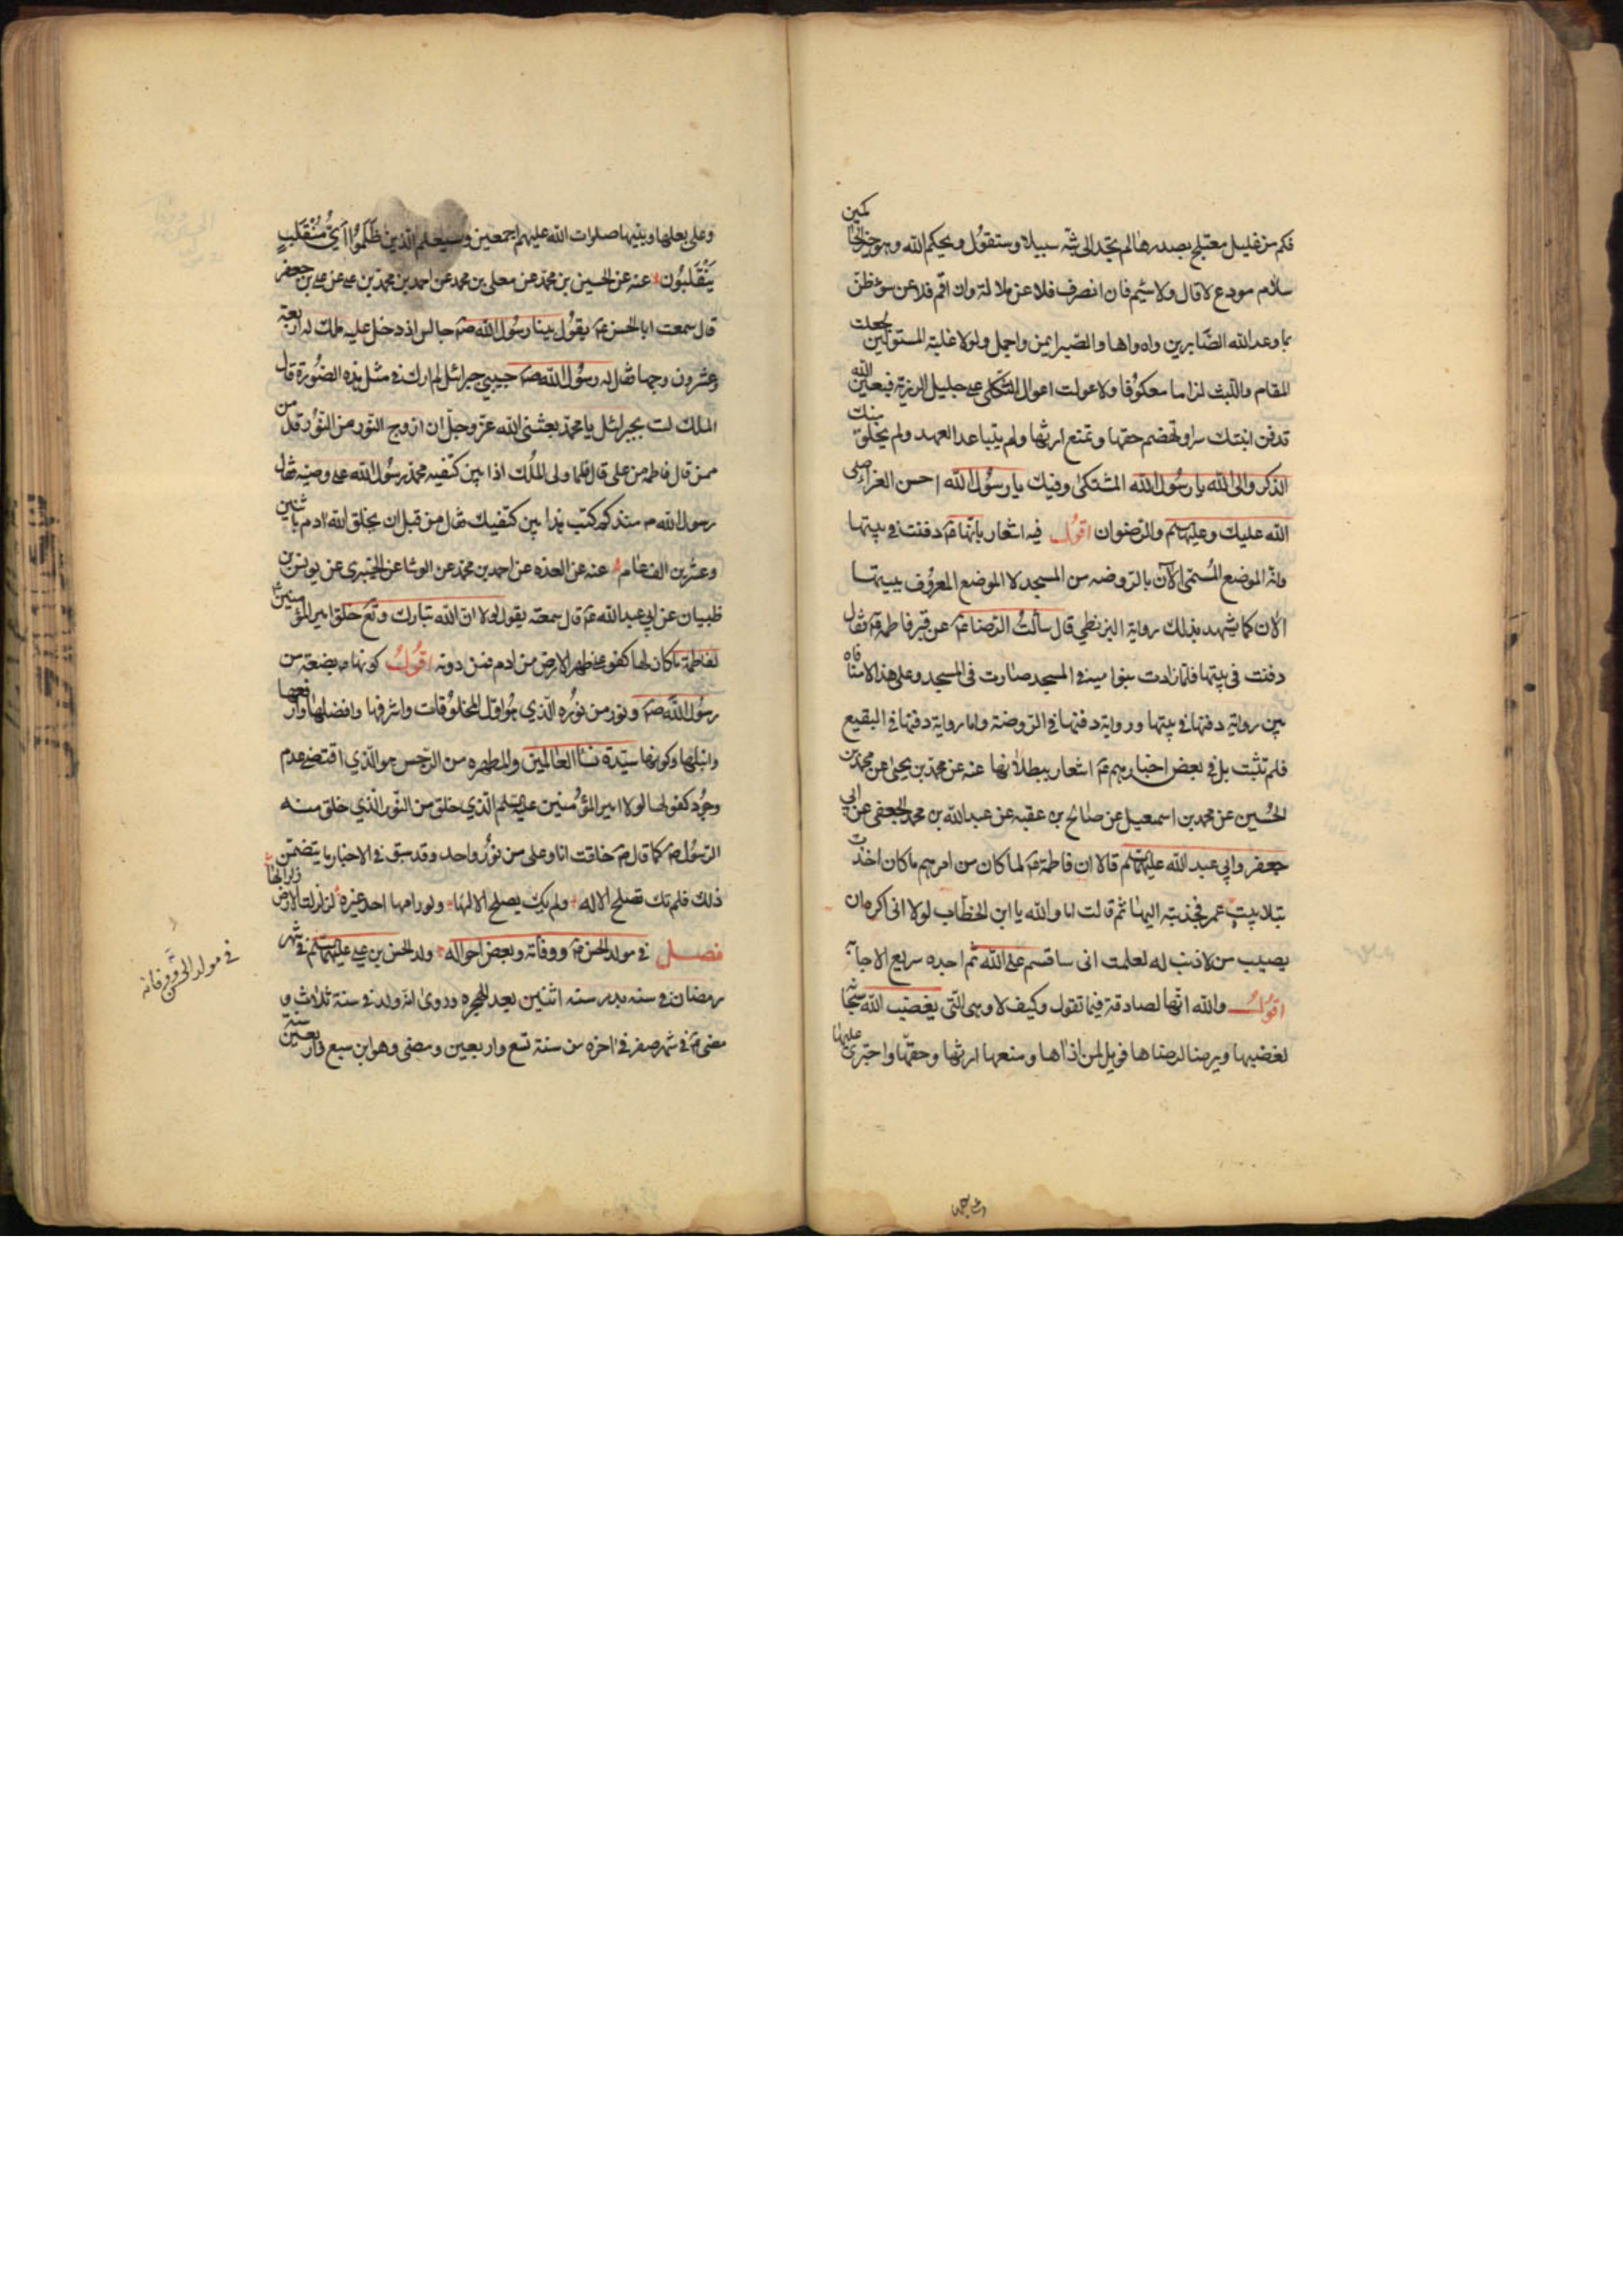 فكم من غليل معتلج بصدرها لم تجد الى بثه سبيلا وستقول ويحكم الله وهو خير الحاكمين
سلام مودع لا قال ولا سئم فان انصرف فلا عن ملالة وان اقم فلا عن سوء ظن
بما وعد الله الصابرين واه واها والصبر ايمن واجمل ولولا غلبة المستولين لجعلت
المقام واللبث لزاما معكوفا ولاعولت اعوال الثكلى على جليل الرزية فبعين الله
تدفن ابنتك سرا وتهضم حقها وتمنع ارثها ولم يتباعد العهد ولم يخلق منك
الذكر والى الله يا رسول الله المشتكى وفيك يا رسول الله احسن العزاء صلى
الله عليك وعليها السلم والرضوان اقول فيه اشعار بانها ع دفنت في بيتها
وانه الموضع المسمى الآن بالروضه من المسجد لا الموضع المعروف ببيتها
الان كما يشهد بذلك رواية البزنطي قال سألت الرضا ع عن قبر فاطمة ع فقال
دفنت في بيتها فلما زادت بنوا ميه في المسجد صارت في المسجد وعلى هذا لا منافاه
بين رواية دفنها في بيتها ورواية دفنها في الروضة واما رواية دفنها في البقيع
فلم تثبت بل في بعض اخبارهم ع اشعار ببطلانها عنه عن محمد بن يحيى عن محمد بن
الحسين عن محمد بن اسمعيل عن صالح بن عقبه عن عبد الله بن محمد الجعفي عن ابي
جعفر وابي عبد الله عليهما السلم قالا ان فاطمة ع لما كان من امرهم ما كان اخذت
بتلابيب عمر فجذبته اليها ثم قالت اما والله يا ابن الخطاب لولا اني اكره ان
يصيب من لا ذنب له لعلمت اني ساقسم على الله ثم اجده سريع الاجابة
اقول والله انها لصادقة فيما تقول وكيف لا وهي التي يغضب الله سبحانه
لغضبها ويرضا لرضاها فويل لمن اذاها ومنعها ارثها وحقها واجترى عليها
وعلى بعلها وبنيها صلوات الله عليهم اجمعين وسيعلم الذين ظلموا اي منقلب
ينقلبون عنه عن الحسين بن محمد عن معلى بن محمد عن احمد بن محمد بن علي عن علي بن جعفر
قال سمعت ابا الحسن ع يقول بينا رسول الله ص جالس اذ دخل عليه ملك له اربعة
وعشرون وجها فقال له رسول الله ص حبيبي جبرائل لم ارك في مثل هذه الصورة قال
الملك لست بجبرائل يا محمد بعثني الله عز وجل ان ازوج النور من النور قال من
ممن قال فاطمه من علي قال فلما ولى الملك اذا بين كتفيه محمد رسول الله علي وصيه فقال
رسول الله ص منذ كم كتب هذا بين كتفيك فقال من قبل ان يخلق الله ادم باثنين
وعشرين الف عام عنه عن العدة عن احمد بن محمد عن الوشا عن الخيبري عن يونس بن
ظبيان عن ابي عبد الله ع قال سمعته يقول لولا ان الله تبارك وتع خلق امير المؤمنين
لفاطمة ما كان لها كفو على ظهر الارض من ادم فمن دونه اقول كونها ع بضعة من
رسول الله ص ونور من نوره الذي هو اول المخلوقات واشرفها وافضلها وارفعها
وانبلها وكونها سيدة نسا العالمين والمطهره من الرجس هو الذي اقتضى عدم
وجود كفو لها لولا امير المؤمنين عليه السلم الذي خلق من النور الذي خلق منه
الرسول ص كما قال ص خلقت انا وعلي من نور واحد وقد سبق في الاخبار ما يتضمن
ذلك فلم تك تصلح الا له ولم يك يصلح الا لها ولو رامها احد غيره لزلزلت الارض زلزالها
فصل في مولد الحسن ع ووفاته وبعض احواله ولد الحسن بن علي عليهما السلم في شهر
رمضان في سنه بدر سنه اثنين بعد الهجره وروى انه ولد في سنة ثلاث و
مضى ع في شهر صفر في اخره من سنة تسع واربعين ومضى وهو ابن سبع واربعين سنة
في مولد الحسن ع ووفاته